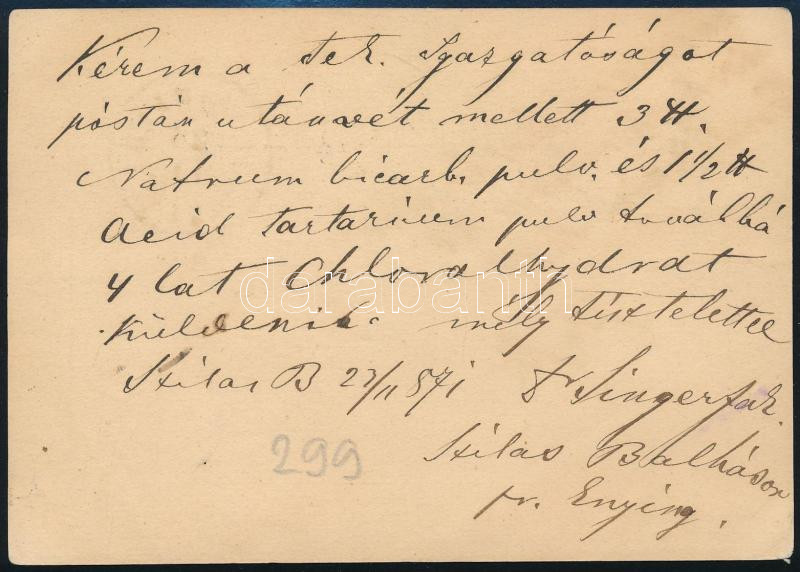 Kérem a Tek. Igazgatóságot
póstán utánvét mellett 3 ℔.
Natrum bicarb. pulv. és 1 1/2 ℔
Acid tartaricum pulv továbbá
4 lat Chloralhydrat
küldeni. mély tisztelettel
Szilas B 23/11 871 Dr Singer
Szilas Balháson
pr. Enying.
299
darabanth